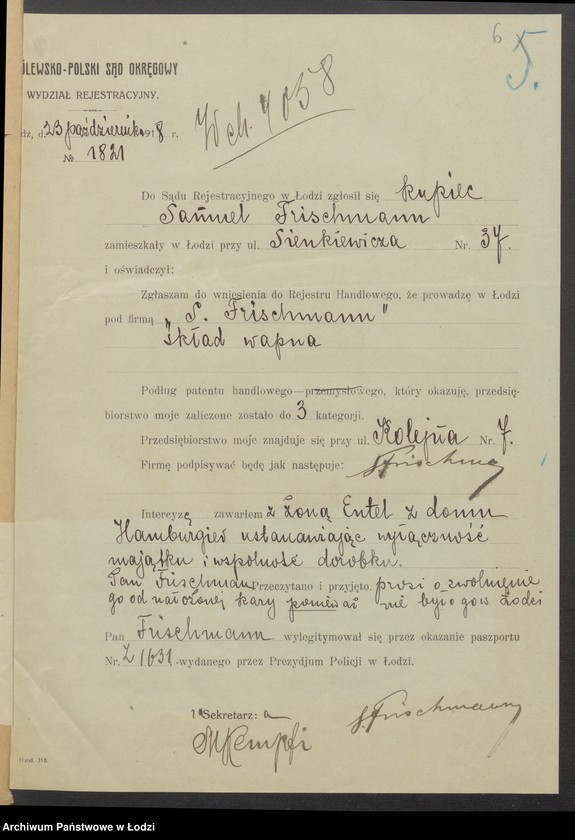 6
5.
ÓLEWSKO-POLSKI SĄD OKRĘGOWY
WYDZIAŁ REJESTRACYJNY.
dź, d. 23 października 1918 r.
№ 1821
Wch. 4058
Do Sądu Rejestracyjnego w Łodzi zgłosił się kupiec
Samuel Frischmann
zamieszkały w Łodzi przy ul. Sienkiewicza Nr. 37.
i oświadczył:
Zgłaszam do wniesienia do Rejestru Handlowego, że prowadzę w Łodzi
pod firmą „S. Frischmann"
skład wapna
Podług patentu handlowego—przemysłowego, który okazuję, przedsię-
biorstwo moje zaliczone zostało do 3 kategorji.
Przedsiębiorstwo moje znajduje się przy ul. Kolejna Nr. 7.
Firmę podpisywać będę jak następuje: S. Frischmann
Intercyzę zawarłem z żoną Entel z domu
Hamburgier ustanawiając wyłączność
majątku i wspólność dorobku.
Pan Frischmann Przeczytano i przyjęto. prosi o zwolnienie
go od nałożonej kary ponieważ nie było go w Łodzi
Pan Frischmann wylegitymował się przez okazanie paszportu
Nr. Z 1631 wydanego przez Prezydjum Policji w Łodzi.
Sekretarz:
S. Frischmann
Hand. J15.
Archiwum Państwowe w Łodzi